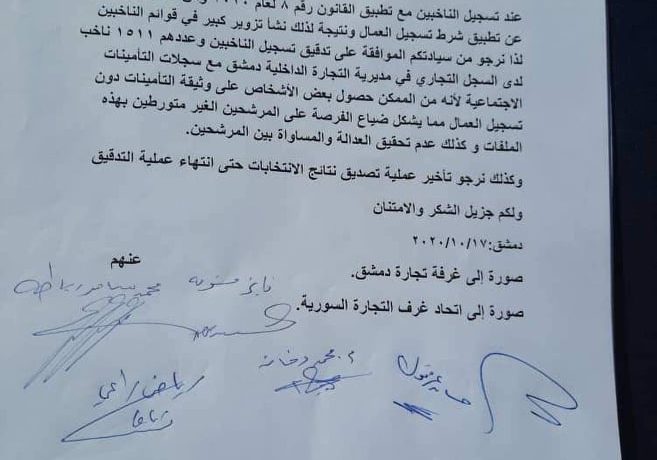 عند تسجيل الناخبين مع تطبيق القانون رقم ٨ لعام ٢٠٢٠
عن تطبيق شرط تسجيل العمال ونتيجة لذلك نشأ تزوير كبير في قوائم الناخبين
لذا نرجو من سيادتكم الموافقة على تدقيق تسجيل الناخبين وعددهم ١٥١١ ناخب
لدى السجل التجاري في مديرية التجارة الداخلية دمشق مع سجلات التأمينات
الاجتماعية لأنه من الممكن حصول بعض الأشخاص على وثيقة التأمينات دون
تسجيل العمال مما يشكل ضياع الفرصة على المرشحين الغير متورطين بهذه
الملفات و كذلك عدم تحقيق العدالة والمساواة بين المرشحين.
وكذلك نرجو تأخير عملية تصديق نتائج الانتخابات حتى انتهاء عملية التدقيق
ولكم جزيل الشكر والامتنان
دمشق:٢٠٢٠/١٠/١٧
عنهم
صورة إلى غرفة تجارة دمشق.
صورة إلى اتحاد غرف التجارة السورية.
محمد سامر
فايز
محمد
رياض